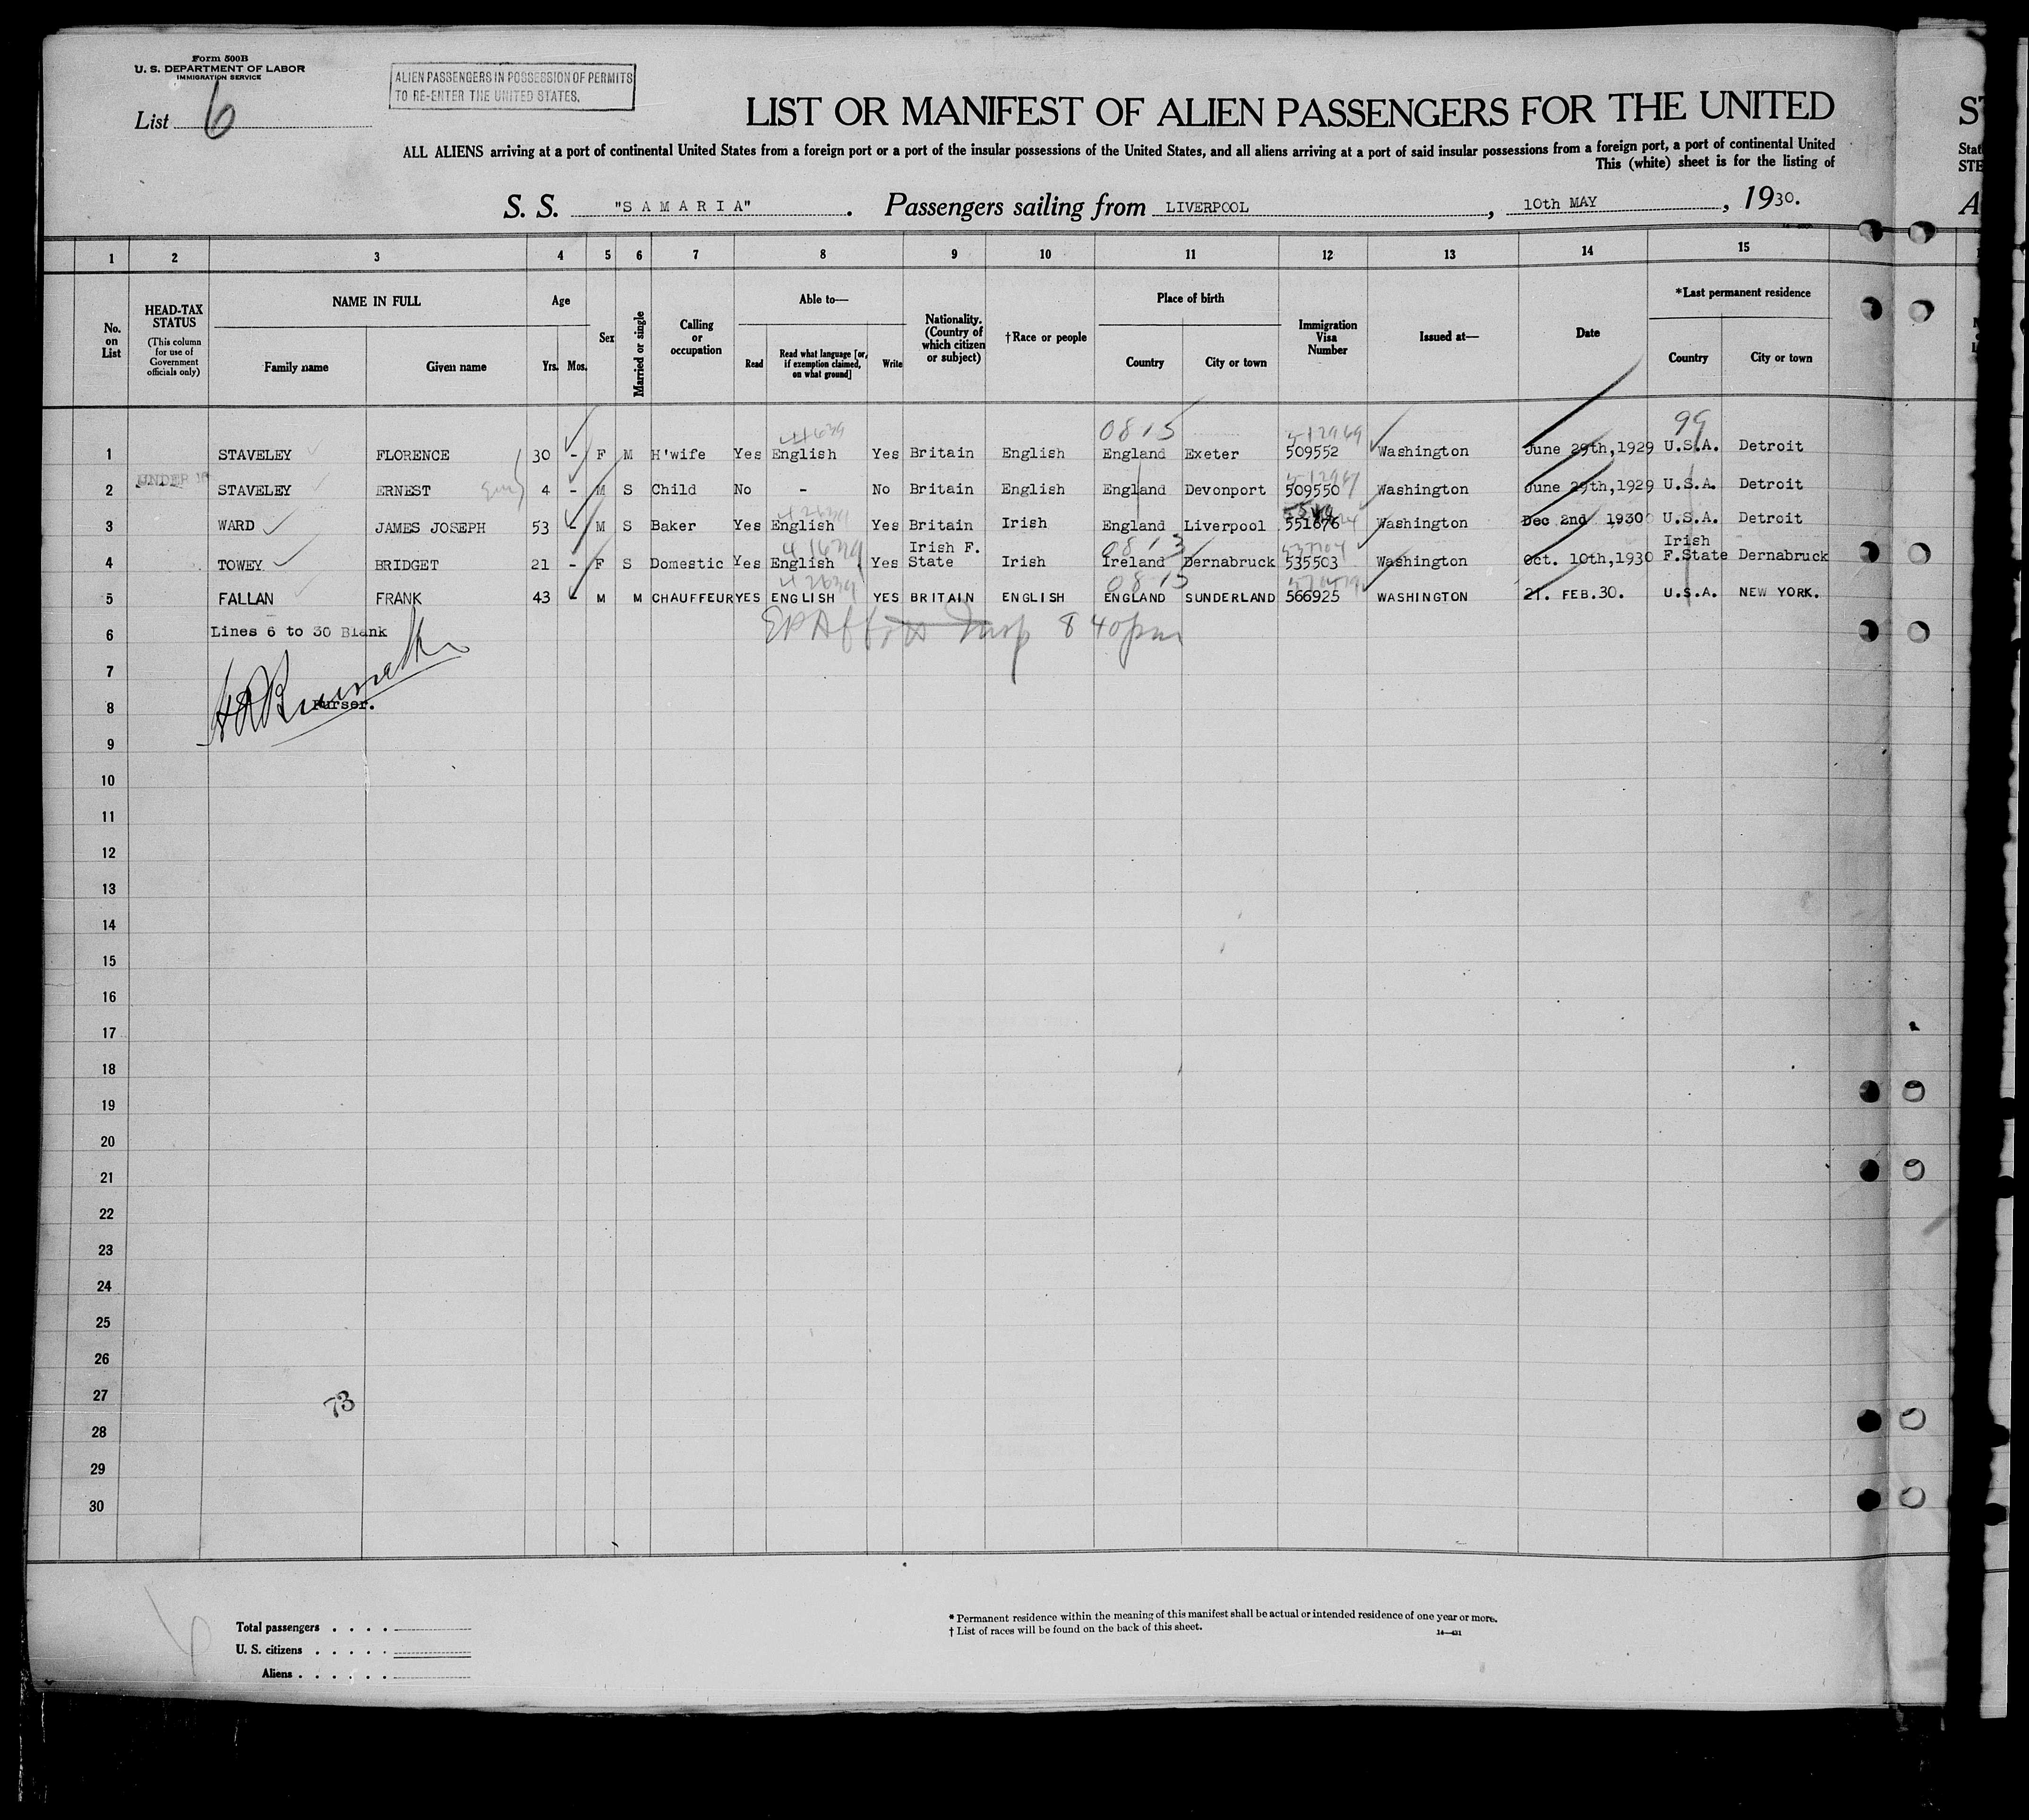 Form 500B
U. S. DEPARTMENT OF LABOR
IMMIGRATION SERVICE
List 6
ALIEN PASSENGERS IN POSSESSION OF PERMITS
TO RE-ENTER THE UNITED STATES.
LIST OR MANIFEST OF ALIEN PASSENGERS FOR THE UNITED
ALL ALIENS arriving at a port of continental United States from a foreign port or a port of the insular possessions of the United States, and all aliens arriving at a port of said insular possessions from a foreign port, a port of continental United
This (white) sheet is for the listing of
S. S. "SAMARIA". Passengers sailing from LIVERPOOL, 10th MAY, 1930.
1 2 3 4 5 6 7 8 9 10 11 12 13 14 15
No. on List
HEAD-TAX STATUS (This column for use of Government officials only)
NAME IN FULL Family name Given name
Age Yrs. Mos.
Sex
Married or single
Calling or occupation
Able to— Read Read what language [or, if exemption claimed, on what ground] Write
Nationality. (Country of which citizen or subject)
†Race or people
Place of birth Country City or town
Immigration Visa Number
Issued at—
Date
*Last permanent residence Country City or town
0815 99
1 STAVELEY FLORENCE 30 - F M H'wife Yes English Yes Britain English England Exeter 509552 Washington June 29th,1929 U.S.A. Detroit
UNDER 16
2 STAVELEY ERNEST 4 - M S Child No - No Britain English England Devonport 509550 Washington June 29th,1929 U.S.A. Detroit
3 WARD JAMES JOSEPH 53 - M S Baker Yes English Yes Britain Irish England Liverpool 551676 Washington Dec 2nd 1930 U.S.A. Detroit
0813
4 TOWEY BRIDGET 21 - F S Domestic Yes English Yes Irish F. State Irish Ireland Dernabruck 535503 Washington Oct. 10th,1930 Irish F.State Dernabruck
0815
5 FALLAN FRANK 43 - M M CHAUFFEUR YES ENGLISH YES BRITAIN ENGLISH ENGLAND SUNDERLAND 566925 WASHINGTON 21. FEB.30. U.S.A. NEW YORK.
6 Lines 6 to 30 Blank
8 40pm
7
8 Purser.
9
10
11
12
13
14
15
16
17
18
19
20
21
22
23
24
25
26
27
73
28
29
30
Total passengers . . . .
U. S. citizens . . . . .
Aliens . . . . . .
* Permanent residence within the meaning of this manifest shall be actual or intended residence of one year or more.
† List of races will be found on the back of this sheet.